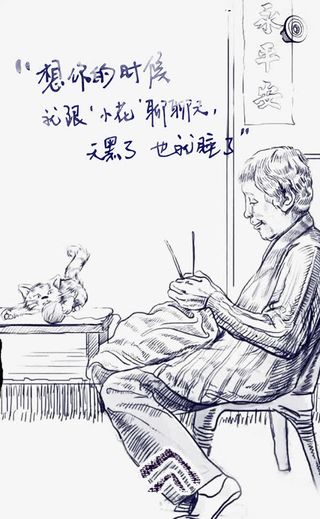 “想你的时候
就跟‘小花’聊聊天，
天黑了 也就睡了”
永
平
安